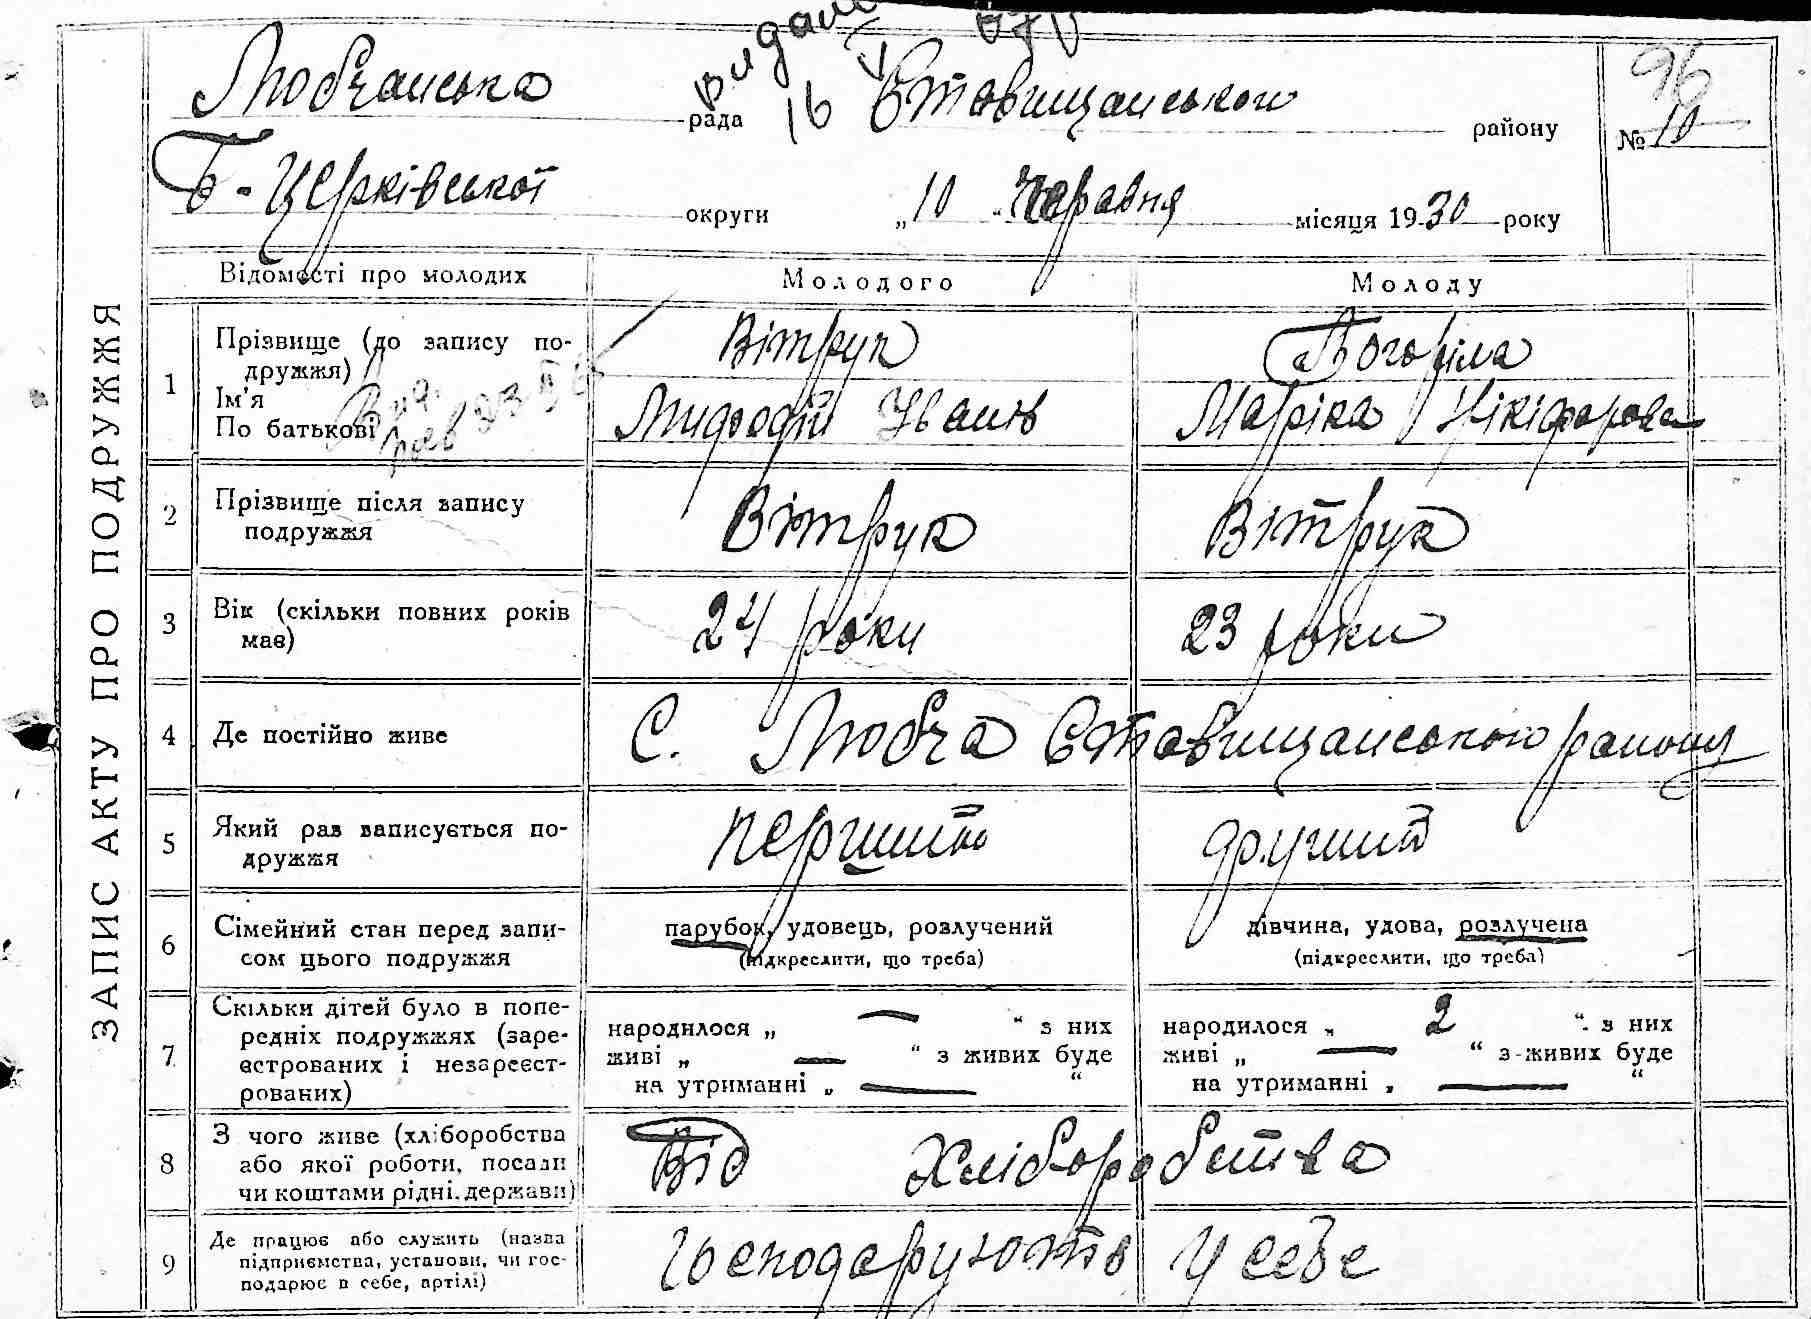 видано
16 V
Любчанська рада Ставищанського району № 10
96
Б-Церківської округи „10" Червня місяця 1930 року
ЗАПИС АКТУ ПРО ПОДРУЖЖЯ
Відомості про молодих Молодого Молоду
1 Прізвище (до запису по-
дружжя) Вітрук Погоріла
Ім'я
По батькові Мифодій Іванів Маріка Нікіфорова
2 Прізвище після запису
подружжя Вітрук Вітрук
3 Вік (скільки повних років
має) 24 роки 23 роки
4 Де постійно живе С. Любча Ставищанського району
5 Який раз записується по-
дружжя перший другий
6 Сімейний стан перед запи- парубок, удовець, розлучений дівчина, удова, розлучена
сом цього подружжя (підкреслити, що треба) (підкреслити, що треба)
7 Скільки дітей було в попе-
редніх подружжях (заре- народилося „ — “ з них народилося „ 2 “ з них
єстрованих і незареєст- живі „ — “ з живих буде живі „ — “ з живих буде
рованих) на утриманні „ — “ на утриманні „ — “
8 З чого живе (хліборобства
або якої роботи, посади Від Хліборобства
чи коштами рідні, держави)
9 Де працює або служить (назва
підприємства, установи, чи гос- Господарують у себе
подарює в себе, артілі)